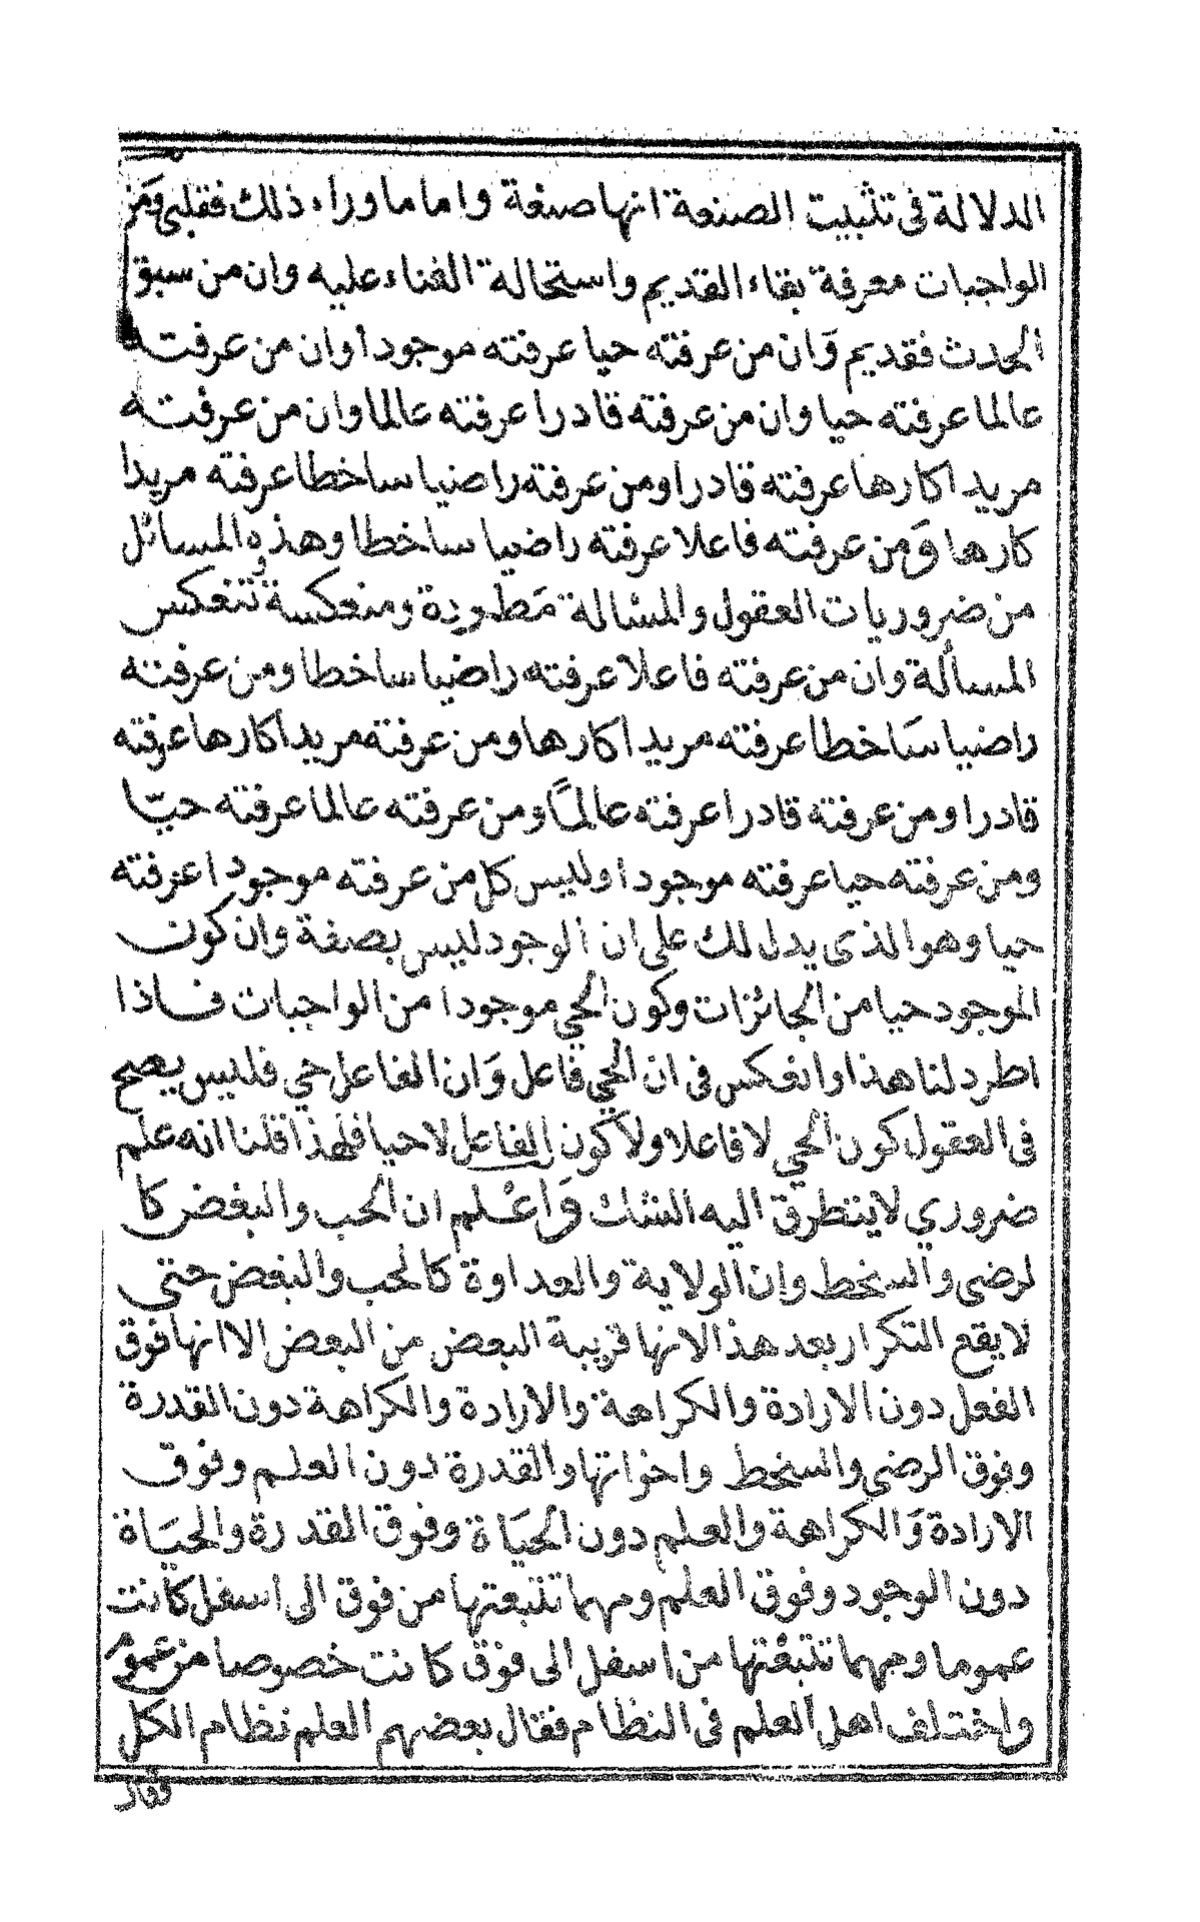 الدلالة في تثبيت الصنعة انها صنعة واما ما وراء ذلك فقلبي ومن
الواجبات معرفة بقاء القديم واستحالة الفناء عليه وان من سبق
الحدث فقديم وَان من عرفته حيا عرفته موجودا وان من عرفته
عالما عرفته حيا وان من عرفته قادرا عرفته عالما وان من عرفته
مريدا كارها عرفته قادرا ومن عرفته راضيا ساخطا عرفته مريدا
كارها وَمن عرفته فاعلا عرفته راضيا ساخطا وهذه المسائل
من ضروريات العقول والمسالة مَطردة ومنعكسة وتنعكس
المسألة وان من عرفته فاعلا عرفته راضيا ساخطا ومن عرفته
راضيا سَاخطا عرفته مريدا كارها ومن عرفته مريدا كارها عرفته
قادرا ومن عرفته قادرا عرفته عالمًا ومن عرفته عالما عرفته حيّا
ومن عرفته حيا عرفته موجودا وليس كل من عرفته موجودا عرفته
حيا وهو الذى يدل لك على ان الوجود ليس بصفة وان كون
الموجود حيا من الجائزات وكون الحي موجودا من الواجبات فاذا
اطرد لنا هذا وانعكس فى ان الحي فاعل وَان الفاعل حي فليس يصح
فى العقول كون الحي لا فاعلا ولا كون الفاعل لا حيا فلهذا قلنا انه علم
ضروري لا يتطرق اليه الشك وَاعْلم ان الحب والبغض كا
لرضى والسخط وان الولاية والعداوة كالحب والبغض حتى
لا يقع التكرار بعد هذا لانها قريبة البعض من البعض الا انها فوق
الفعل دون الارادة والكراهة والارادة والكراهة دون القدرة
وفوق الرضي والسخط واخواتها والقدرة دون العلم وفوق
الارادة وَالكراهة والعلم دون الحيَاة وفوق القدرة والحيَاة
دون الوجود وفوق العلم ومهما تتبعتها من فوق الى اسفل كانت
عموما ومهما تتبعتها من اسفل الى فوق كانت خصوصا من عموم
واختلف اهل العلم فى النظام فقال بعضهم العلم نظام الكل
وقال